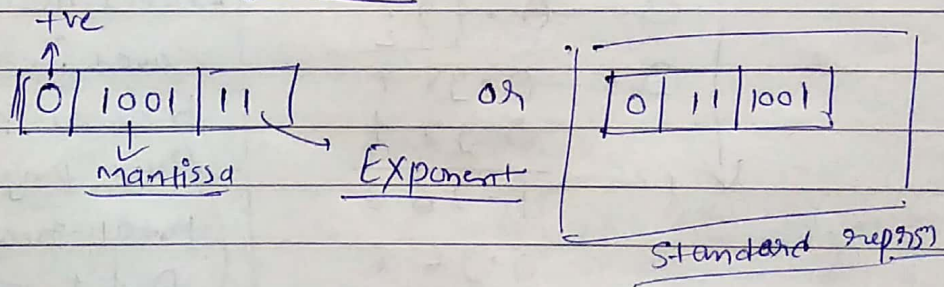 +ve
0 1001 11 or 0 11 1001
Mantissa Exponent
Standard reprsn